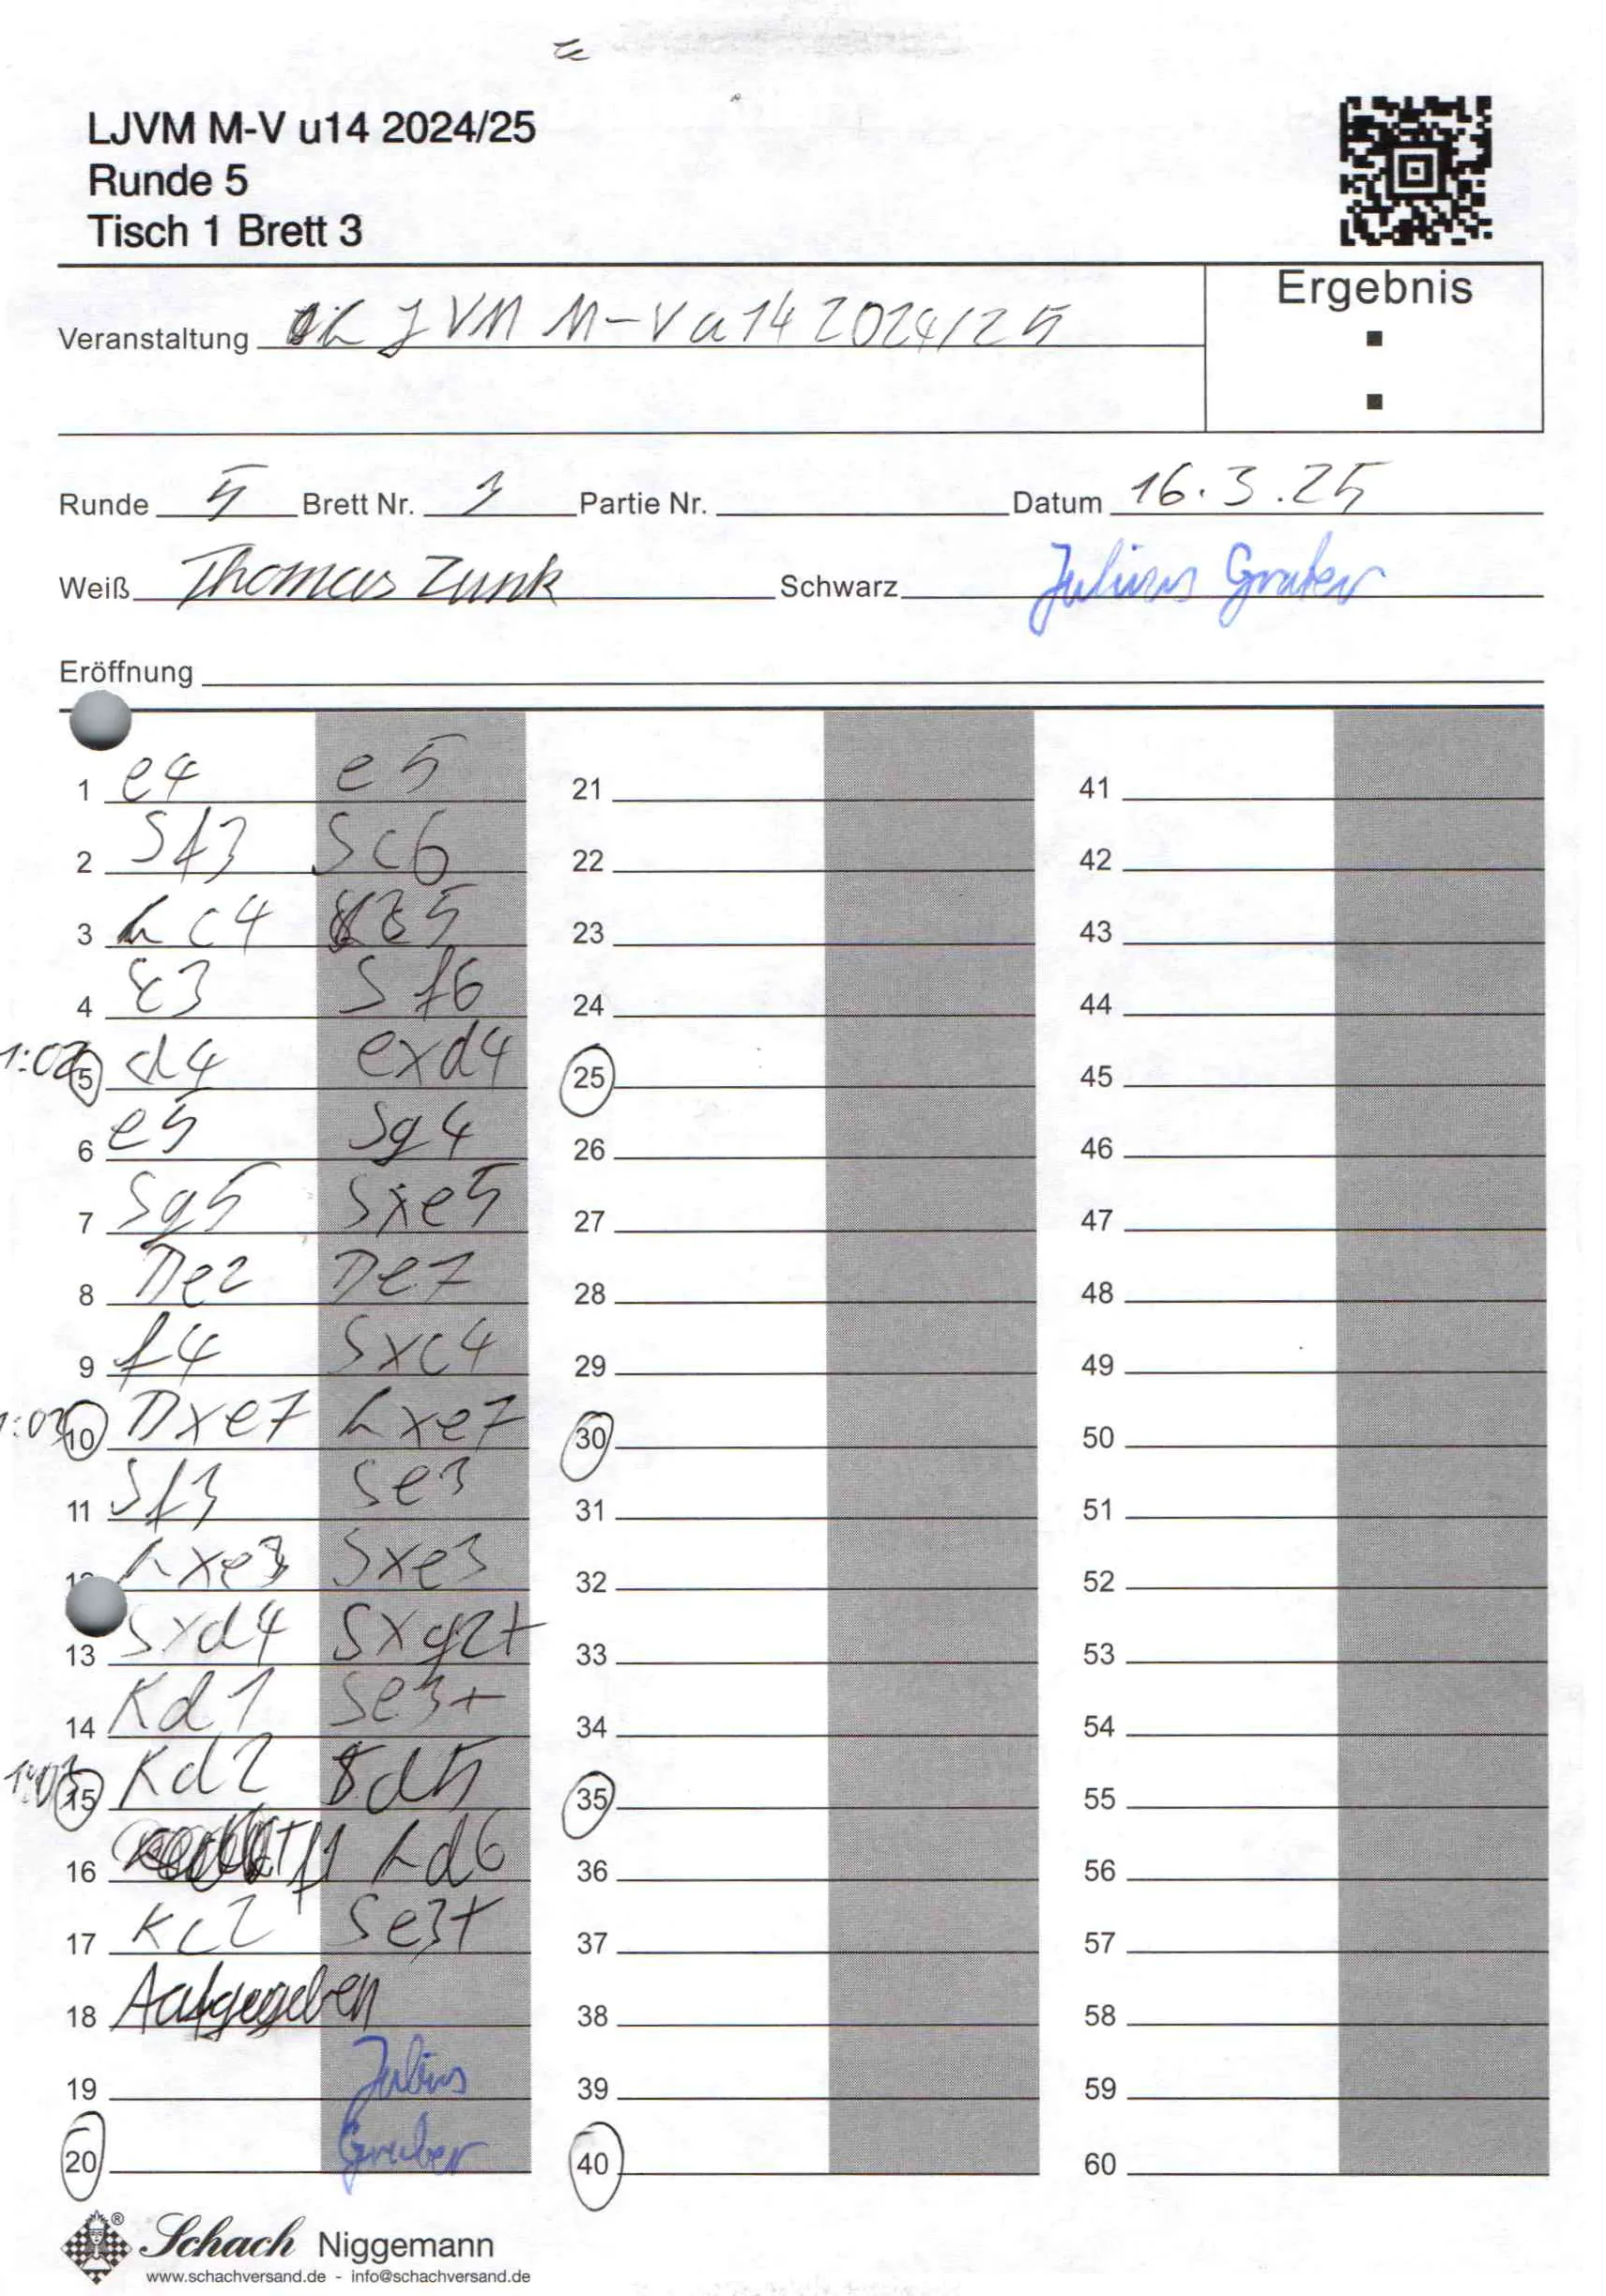 LJVM M-V u14 2024/25
Runde 5
Tisch 1 Brett 3
Ergebnis
:
Veranstaltung LJVM M-V u14 2024/25
Runde 5 Brett Nr. 3 Partie Nr. Datum 16.3.25
Weiß Thomas Zunk Schwarz Julius Gruber
Eröffnung
1 e4 e5 21 41
2 Sf3 Sc6 22 42
3 Lc4 23 43
4 c3 Sf6 24 44
5 d4 exd4 25 45
6 e5 Sg4 26 46
7 Sg5 Sxe5 27 47
8 De2 De7 28 48
9 f4 Sxc4 29 49
10 Dxe7 Lxe7 30 50
11 Sf3 Se3 31 51
12 Lxe3 Sxe3 32 52
13 Sxd4 Sxg2+ 33 53
14 Kd1 Se3+ 34 54
15 Kd2 Sd5 35 55
16 Tf1 Ld6 36 56
17 Kc2 Se3+ 37 57
18 Aufgegeben 38 58
19 Julius 39 59
20 Gruber 40 60
Schach Niggemann
www.schachversand.de - info@schachversand.de